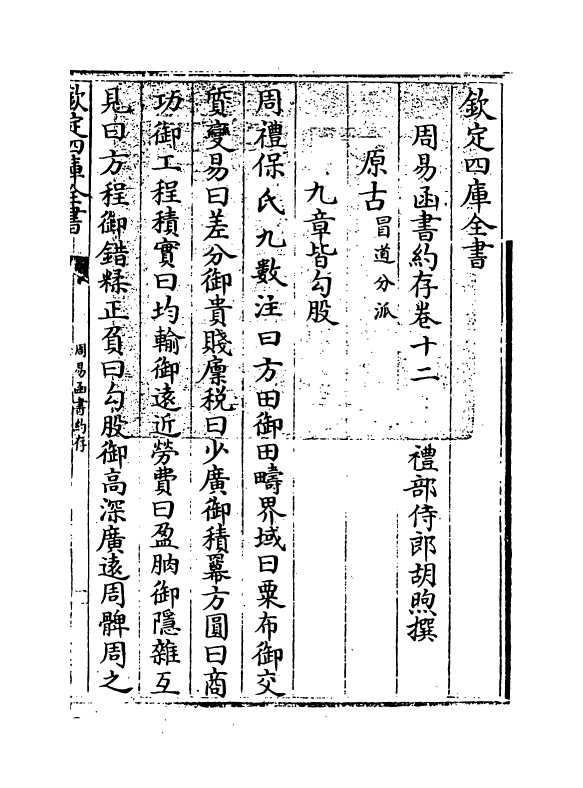 欽定四庫全書
周易函書約存卷十二　禮部侍郎胡煦撰
原古冒道分派
九章皆勾股
周禮保氏九數注曰方田御田疇界域曰粟布御交
質變易曰差分御貴賤廪税曰少廣御積羃方圓曰商
功御工程積實曰均輸御遠近勞費曰盈朒御隱雜互
見曰方程御錯糅正負曰勾股御高深廣遠周髀周之
欽定四庫全書
周易函書約存